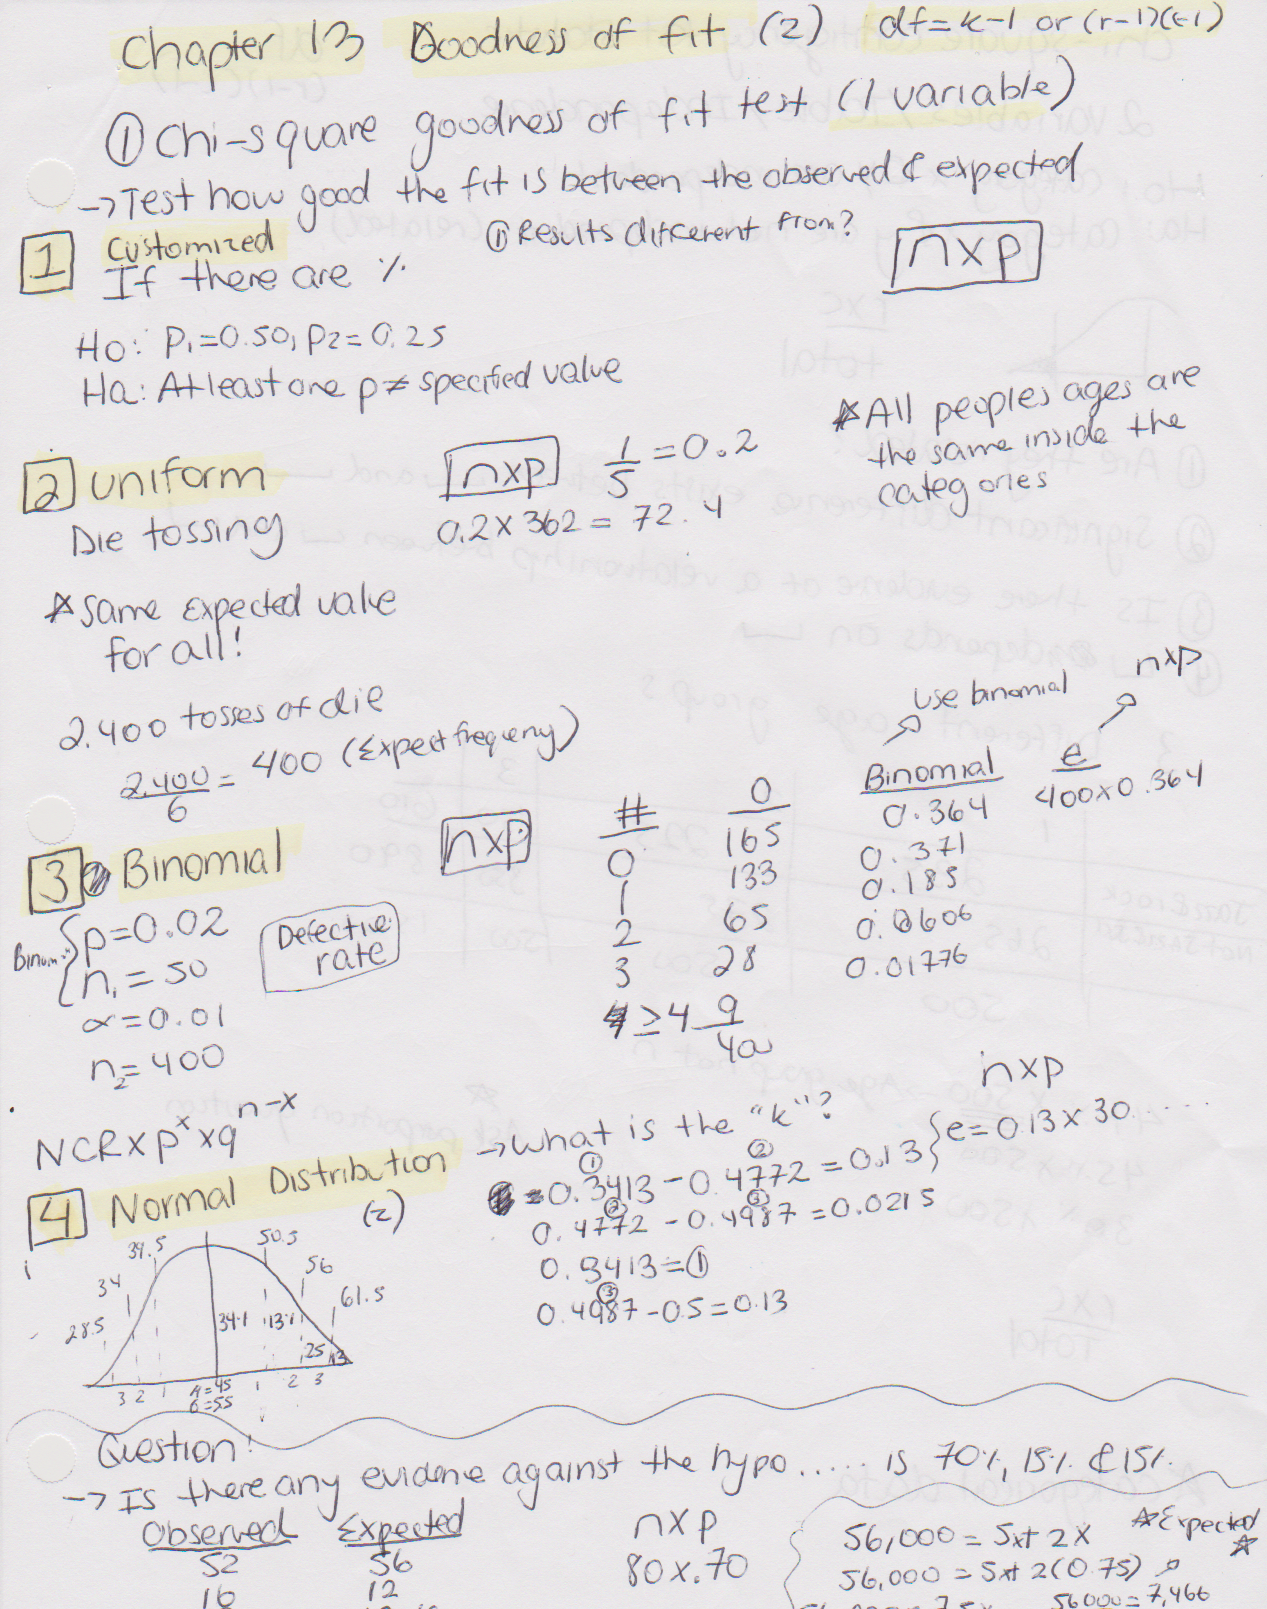 Chapter 13 Goodness of fit (2) df=k-1 or (r-1)(c-1)
① Chi-square goodness of fit test (1 variable)
→Test how good the fit is between the observed & expected
① Results different from?
1 Customized
If there are %
n×p
Ho: P1=0.50, P2=0.25
Ha: At least one p≠ specified value
☆All peoples ages are
the same inside the
categories
2 uniform
n×p 1/5 =0.2
Die tossing
0.2×362 = 72.4
☆same expected value
for all!
2,400 tosses of die
2,400/6 = 400 (Expect frequency)
3 Binomial
n×p
Binom
p=0.02
n1=50
α=0.01
n2=400
Defective
rate
use binomial n×p
# O Binomial e
0 165 0.364 400×0.364
1 133 0.371
2 65 0.185
3 28 0.0606
≥4 9 0.01776
400
NCR×p^x×q^n-x
→What is the "k"?
n×p
① ②
0.3413-0.4772=0.13 } e=0.13×30.....
② ③
0.4772-0.4987=0.0215
0.3413=①
③
0.4987-0.5=0.13
4 Normal Distribution
(z)
39.5 50.5
34 56
28.5 61.5
34.1 13.1
25 13
3 2 1 μ=45 1 2 3
6=55
Question!
→ Is there any evidence against the hypo..... is 70%, 15% & 15%.
Observed Expected
52 56
16 12
n×p
80×.70
56,000 = 5x+2x ☆Expected
☆
56,000 = 5x+2(0.75)
56000=7,466